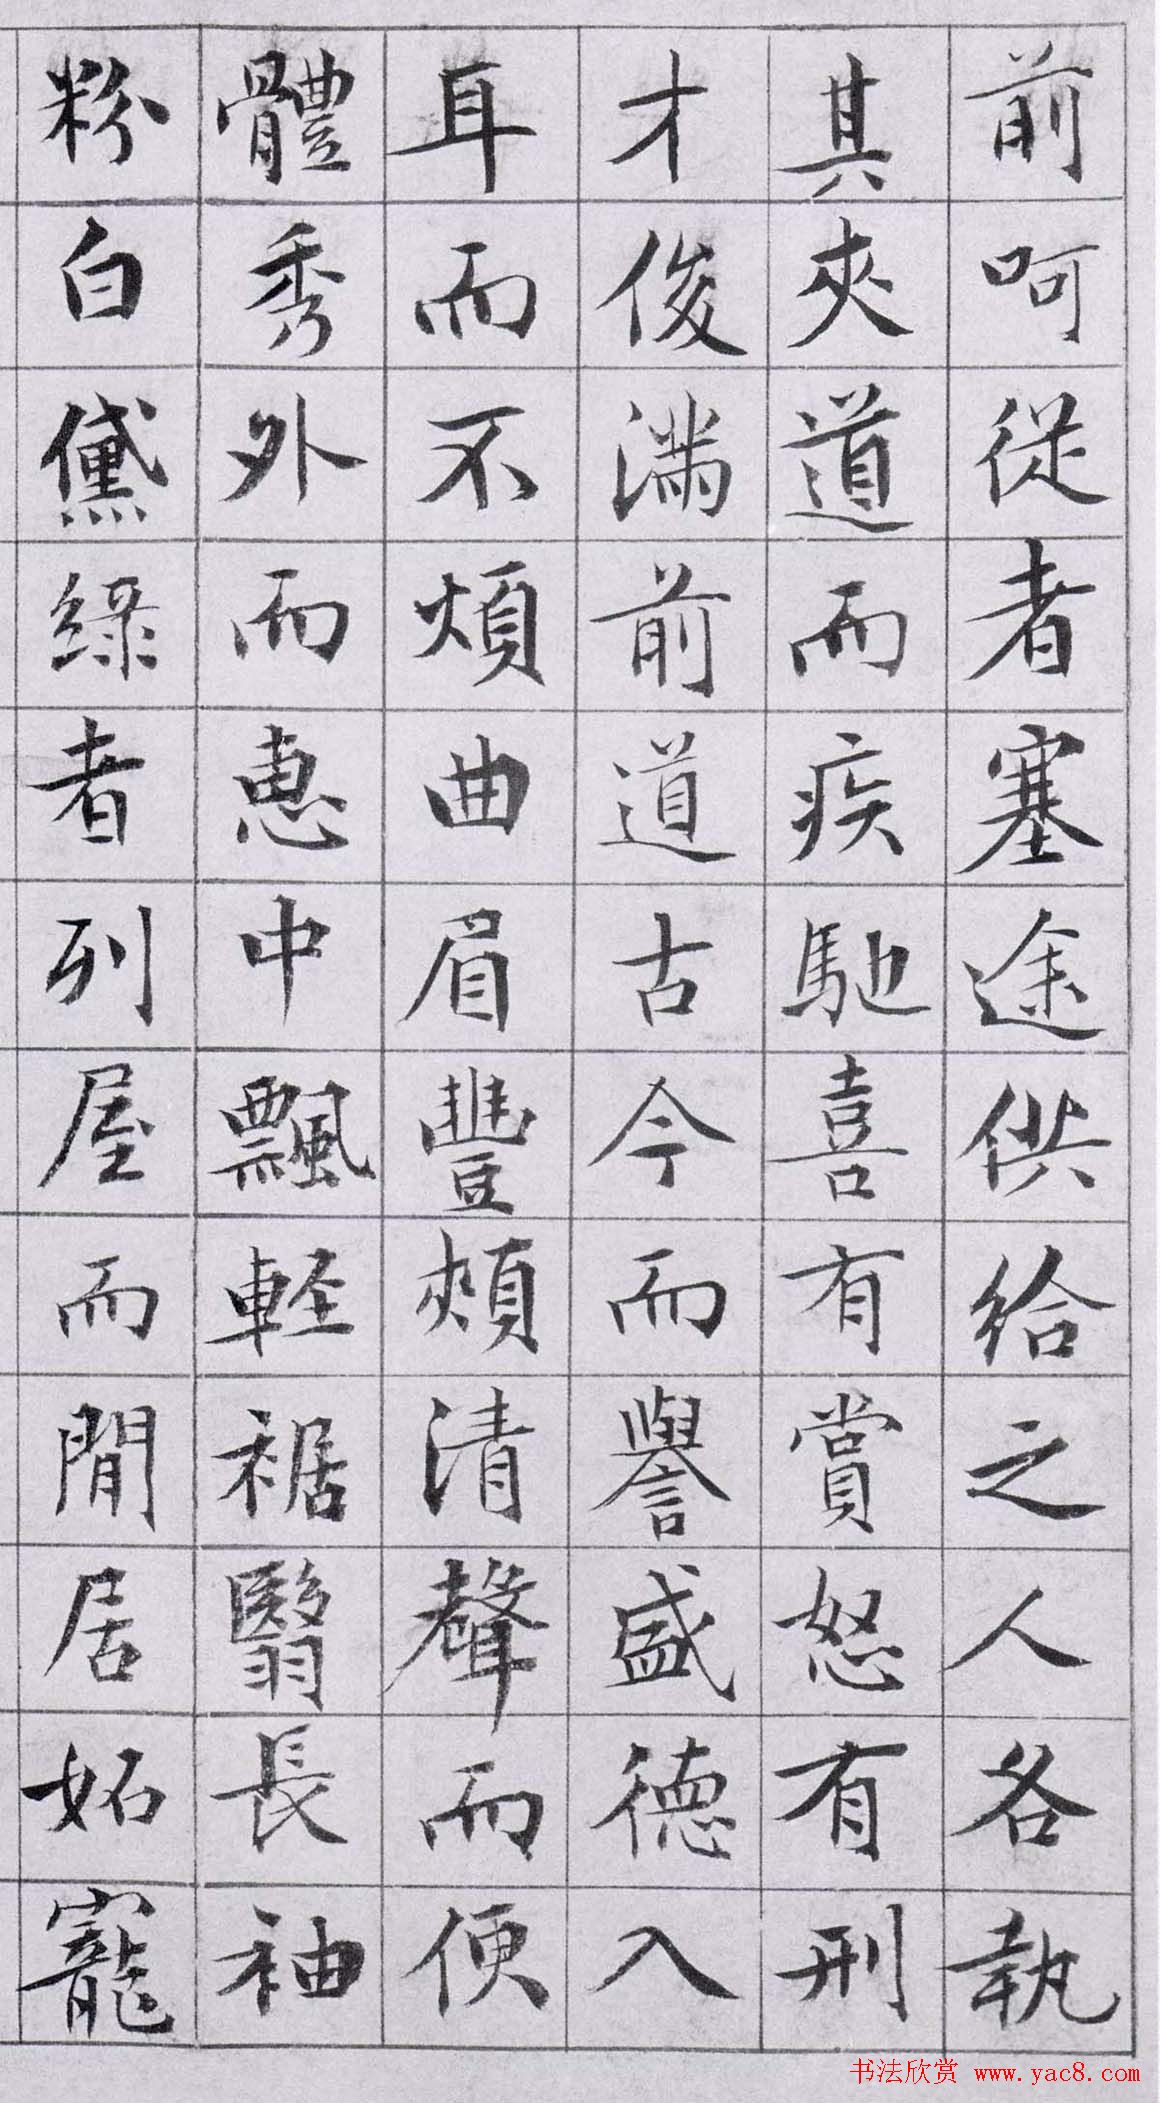 前呵從者塞途供給之人各執
其夾道而疾馳喜有賞怒有刑
才俊滿前道古今而譽盛德入
耳而不煩曲眉豐頰清聲而便
體秀外而惠中飄輕裾翳長袖
粉白黛綠者列屋而閒居妬寵
书法欣赏 www.yac8.com